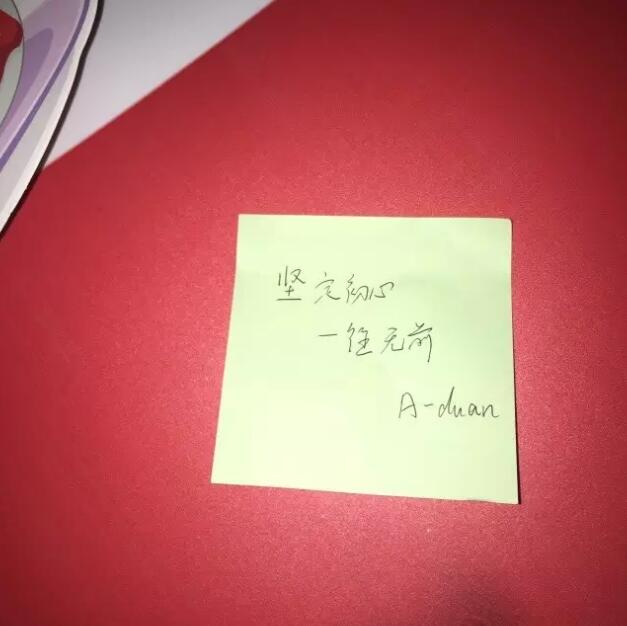 坚定初心
一往无前
A-duan